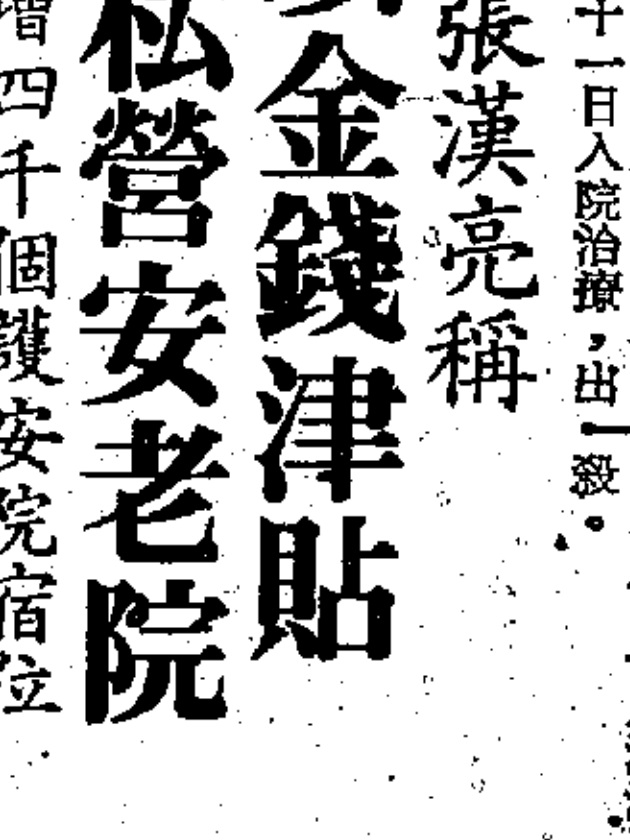 十一日入院治療，出
殺。
張漢亮稱
金錢津貼
私營安老院
增四千個護安院宿位